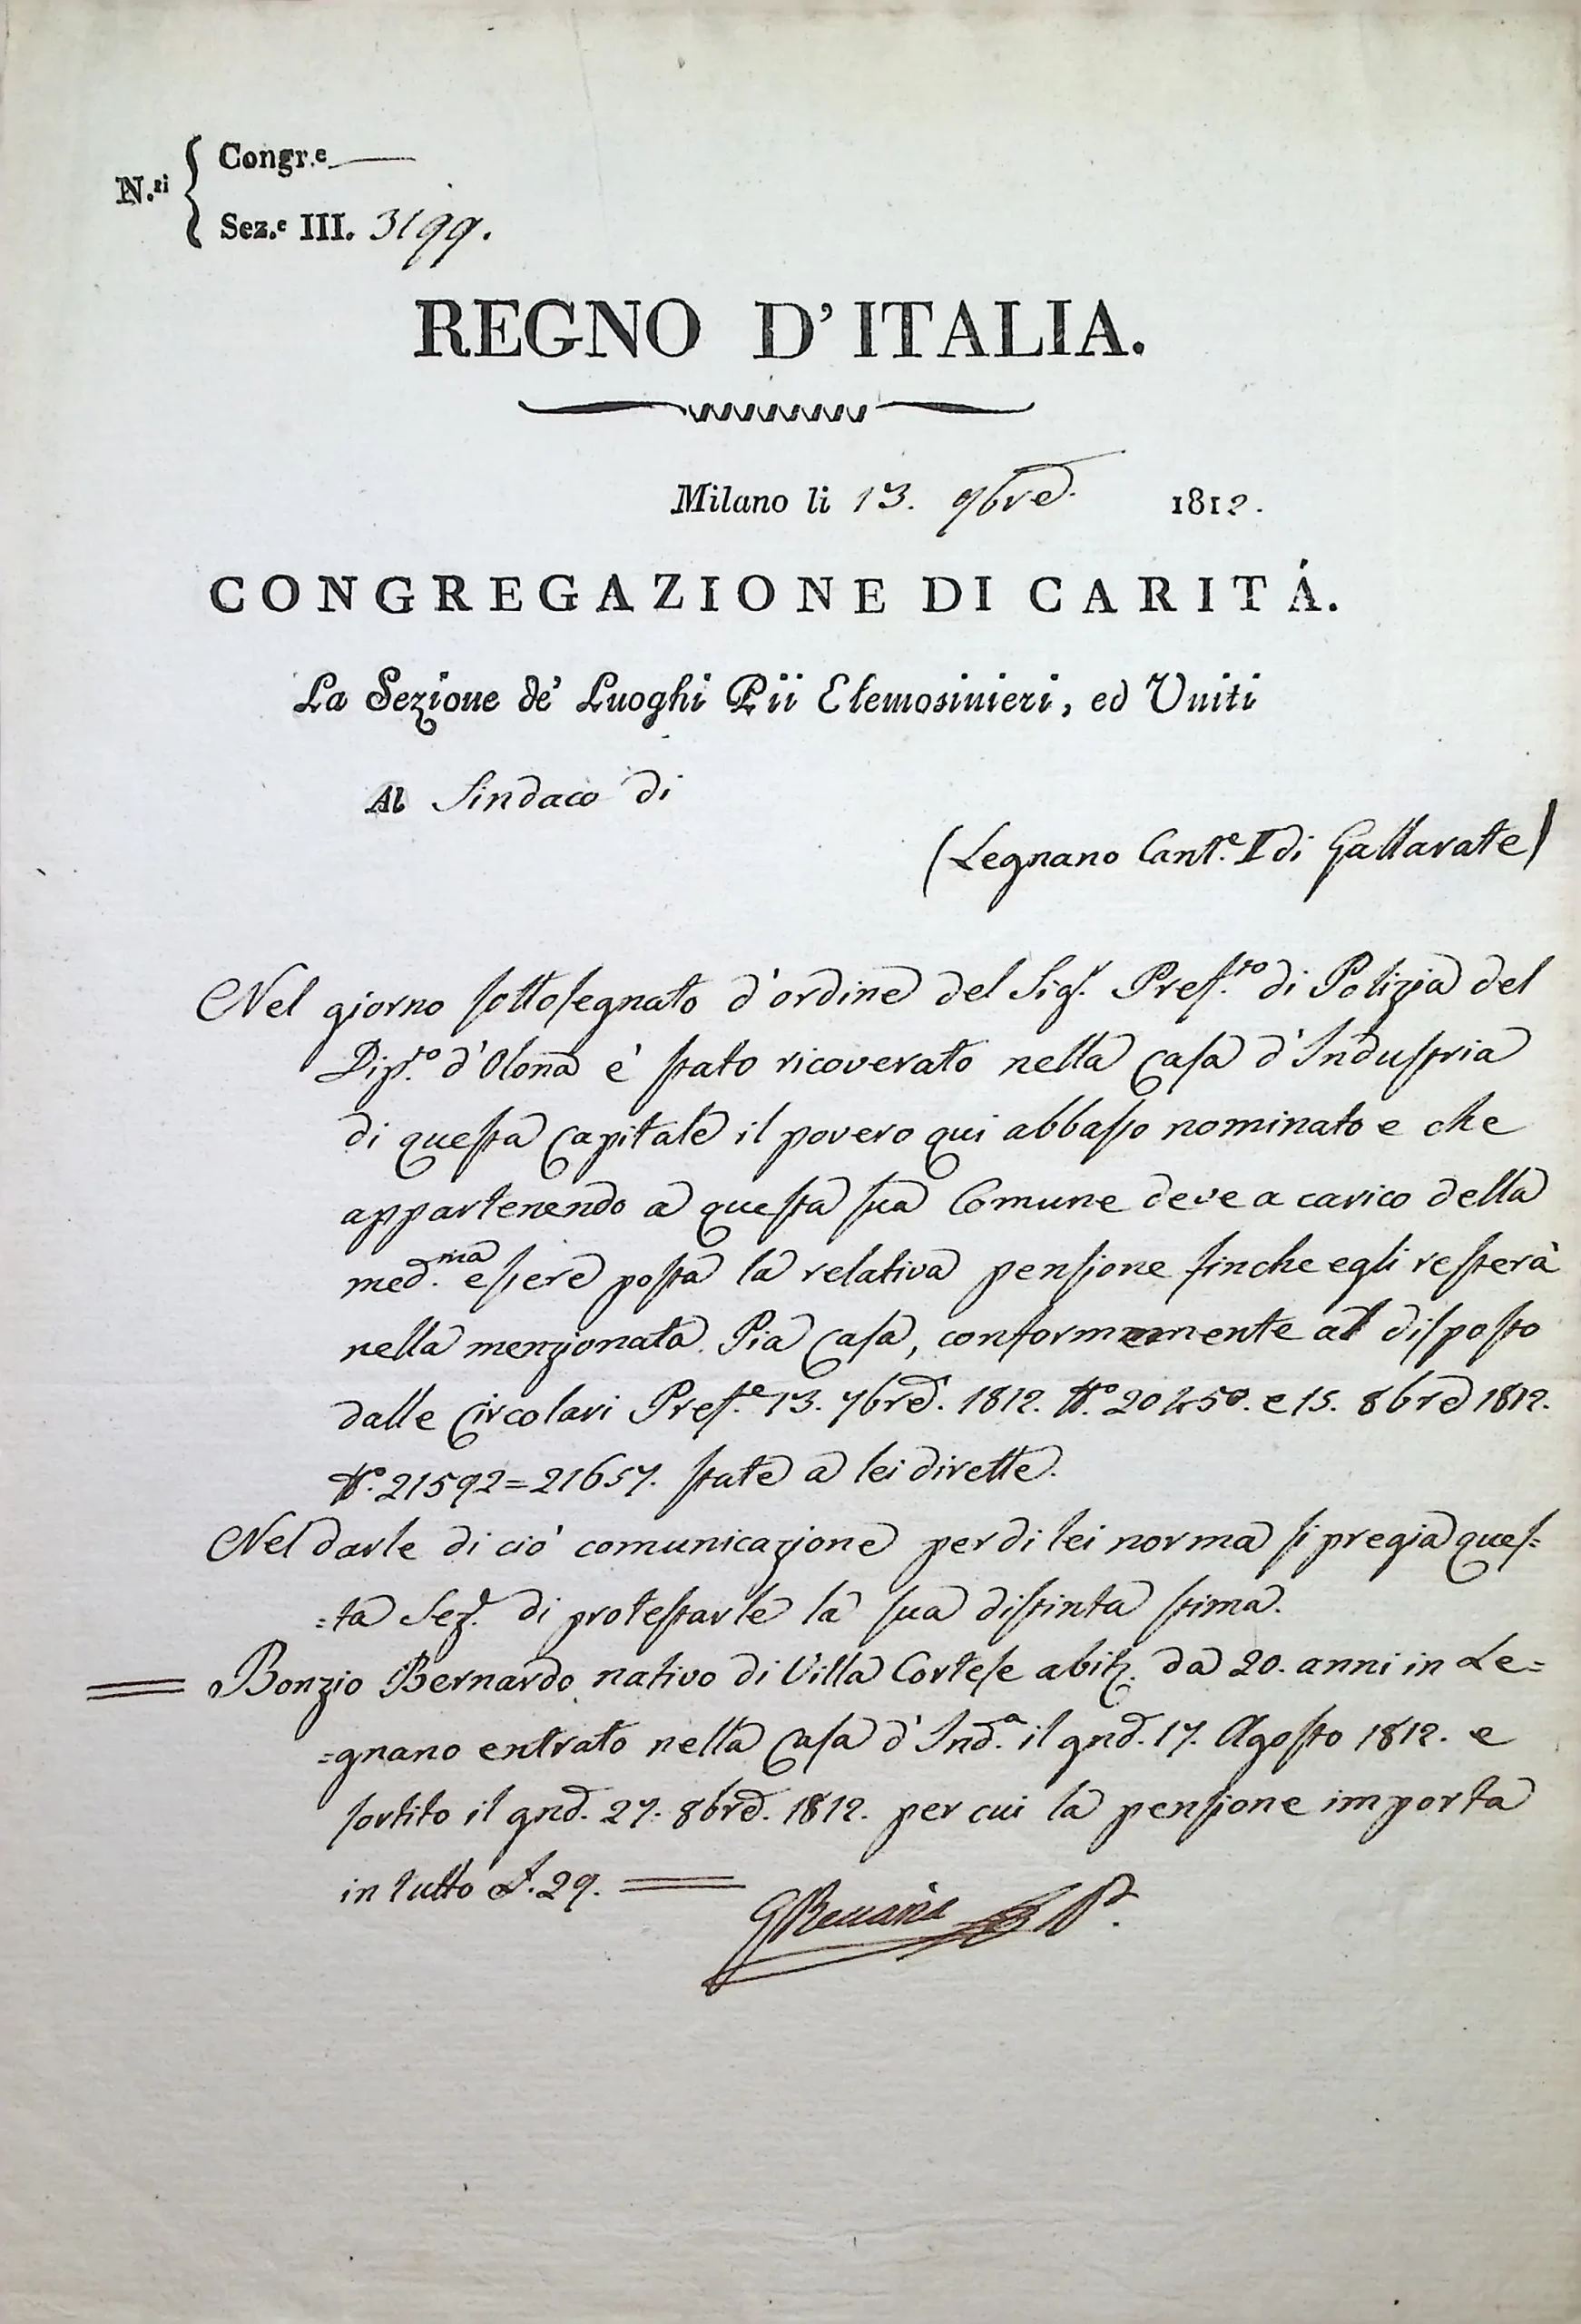 N.ri
Congr.e
Sez.e III. 3199.
REGNO D'ITALIA.
Milano li 13. 9bre. 1812.
CONGREGAZIONE DI CARITÁ.
La Sezione de' Luoghi Pii Elemosinieri, ed Uniti
Al Sindaco di
(Legnano Cant.e I di Gallarate)
Nel giorno sottosegnato d'ordine del Sigr. Pref.to di Polizia del
Dip.to d'Olona è stato ricoverato nella Casa d'Industria
di questa Capitale il povero qui abbasso nominato e che
appartenendo a questa sua Comune deve a carico della
med.ma essere posta la relativa pensione finche egli resterà
nella menzionata Pia Casa, conformemente al disposto
dalle Circolari Pref.e 13. 7bre. 1812. N.o 20450. e 15. 8bre 1812.
N.o 21592=21657. state a lei dirette.
Nel darle di ciò comunicazione per di lei norma si pregia ques=
=ta Sez. di protestarle la sua distinta stima.
= Bonzio Bernardo nativo di Villa Cortese abit. da 20. anni in Le=
=gnano entrato nella Casa d'Ind.a il gnd. 17. Agosto 1812. e
sortito il gnd. 27. 8bre. 1812. per cui la pensione importa
in tutto £. 29. =